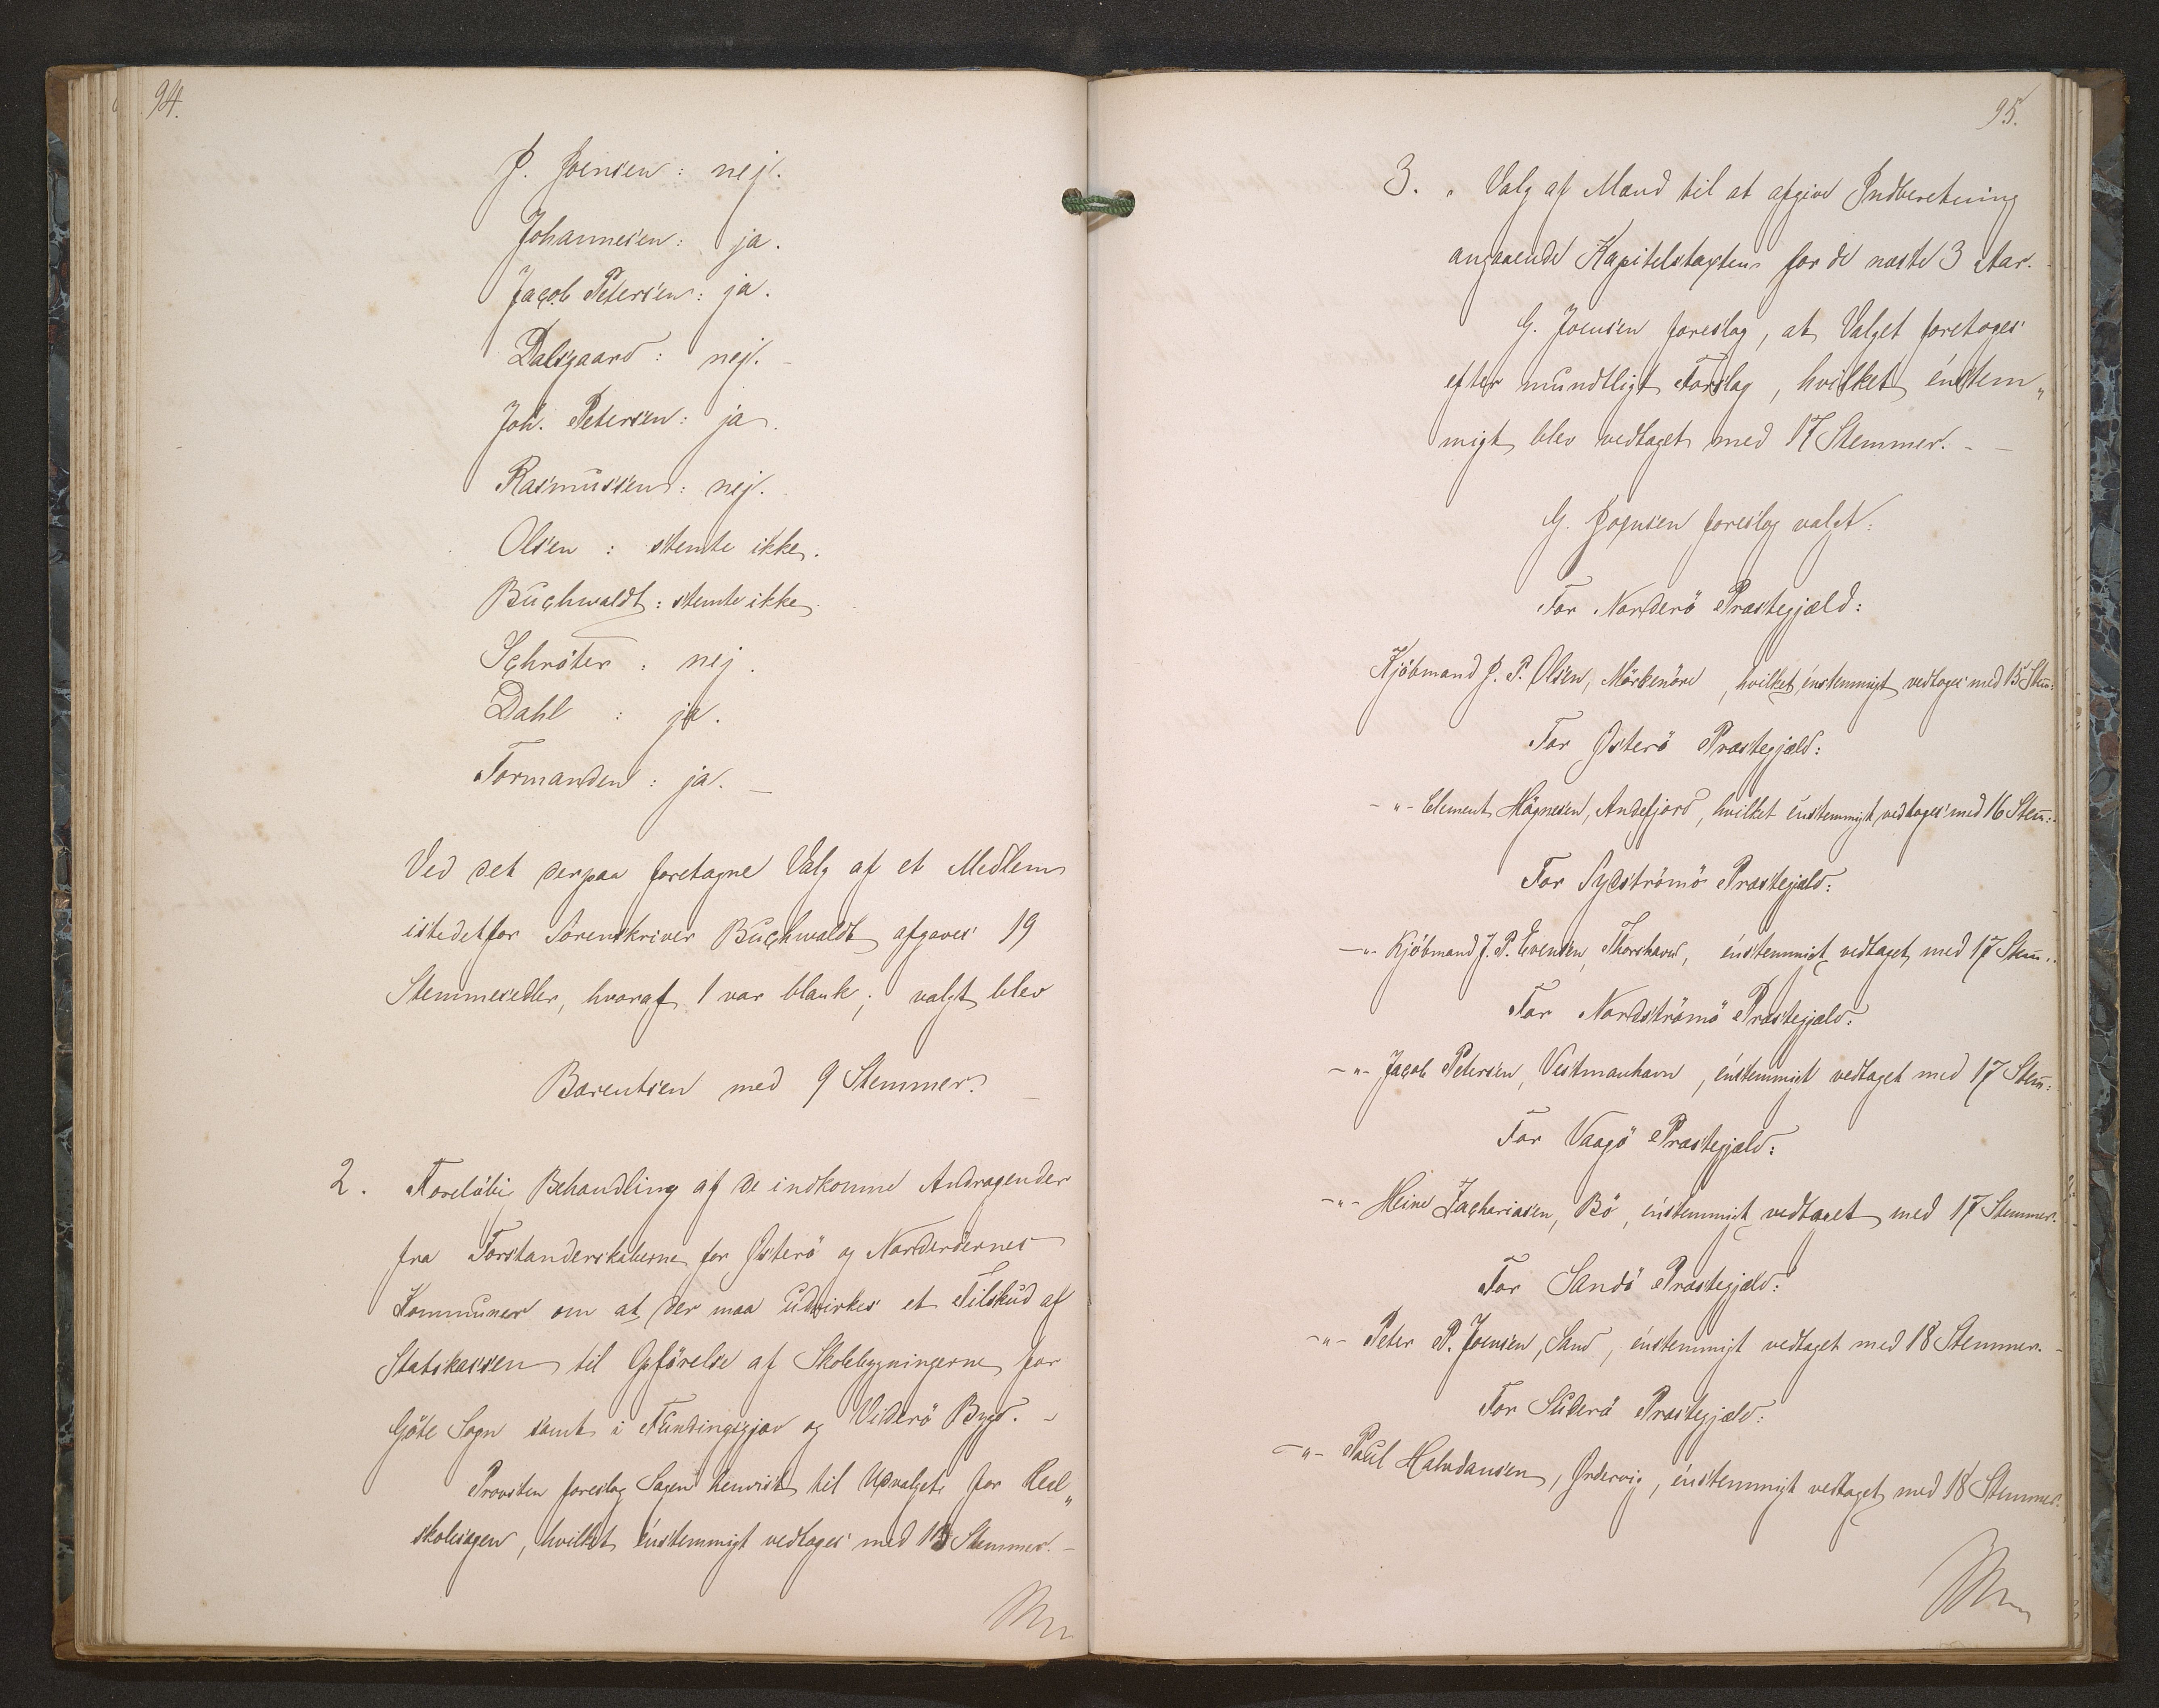 94.
J. Joensen: nej.
Johannesen: ja.
Jacob Petersen: ja.
Dalsgaard: nej. -
Joh. Petersen: ja.
Rasmussen: nej.
Olsen: stemte ikke.
Buchwaldt: stemte ikke
Schröter: nej.
Dahl: ja.
Formanden: ja. -
Ved det derpaa foretagne Valg af et Medlem
istedetfor Sorenskriver Buchwaldt afgaves 19
Stemmesedler, hvoraf 1 var blank; valgt blev
Barentsen med 9 Stemmer. -
2. Foreløbig Behandling af de indkomne Andragender
fra Forstanderskaberne for Østerö og Norderöernes
Kommuner om at der maa udvirkes et Tilskud af
Statskassen til Opförelse af Skolebygningerne for
Göte Sogn samt i Fundingsgjov og Viderö Bygd. -
Provsten foreslog Sagen henvist til Udvalget for Real„
skolesagen, hvilket énstemmigt vedtoges med 18 Stemmer. -
95.
3. Valg af Mænd til at afgive Indberetning
angaaende Kapitelstaxten for de næste 3 Aar.
G. Joensen foreslog, at Valget foretoges
efter mundtligt Forslag, hvilket énstem„
migt blev vedtaget med 17 Stemmer. -
G. Joensen foreslog valgt:
For Norderö Præstegjæld:
Kjöbmand J. P. Olsen, Mörkenöre, hvilket énstemmigt vedtoges med 15 Stem:
For Østerö Præstegjæld:
-„- Clement Högnesen, Andefjord, hvilket énstemmigt vedtoges med 16 Stem:
For Sydströmö Præstegjæld:
-„- Kjöbmand J. P. Evensen, Thorshavn, énstemmigt vedtaget med 17 Stem:
For Nordströmö Præstegjæld:
-„- Jacob Petersen, Vestmanhavn, énstemmigt vedtaget med 17 Stem:
For Vaagö Præstegjæld:
-„- Heine Zachariasen, Bö, énstemmigt vedtaget med 17 Stemmer.
For Sandö Præstegjæld:
-„- Peter P. Joensen, Sand, énstemmigt vedtaget med 18 Stemmer. -
For Suderö Præstegjæld:
-„- Poul Halvdansen, Ördervig, énstemmigt vedtaget med 18 Stemmer.